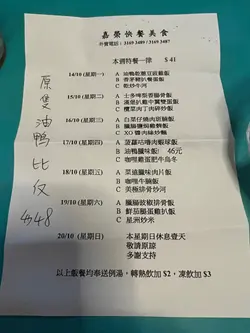 嘉榮快餐美食
外賣電話：3169 3489 / 3169 3487
本週特餐一律 $ 41
14/10 (星期一) A 油鴨乾蔥豆豉雞飯
B 香茅豬扒餐蛋飯
C 乾炒牛河
15/10 (星期二) A 士多啤梨香腸骨飯
B 漢堡扒雞中翼雙蛋飯
C 欖菜肉丁肉碎炒飯
16/10 (星期三) A 白菜仔燒肉斑腩飯
B 臘腸鹽焗雞髀飯
C XO 醬肉絲炒麵
17/10 (星期四) A 菠蘿咕嚕肉蝦球飯
B 油鴨臘味飯） 46元
C 咖喱雞蛋肥牛烏冬
18/10 (星期五) A 菜遠臘味肉片飯
B 咖喱牛腩飯
C 美極排骨炒河
19/10 (星期六) A 臘腸豉椒排骨飯
B 鮮茄腸蛋雞扒飯
C 星洲炒米
20/10 (星期日) 本星期日休息壹天
敬請原諒
多謝支持
以上飯餐均奉送例湯，轉熱飲加 $2，凍飲加 $3
原隻油鴨比仅
$48